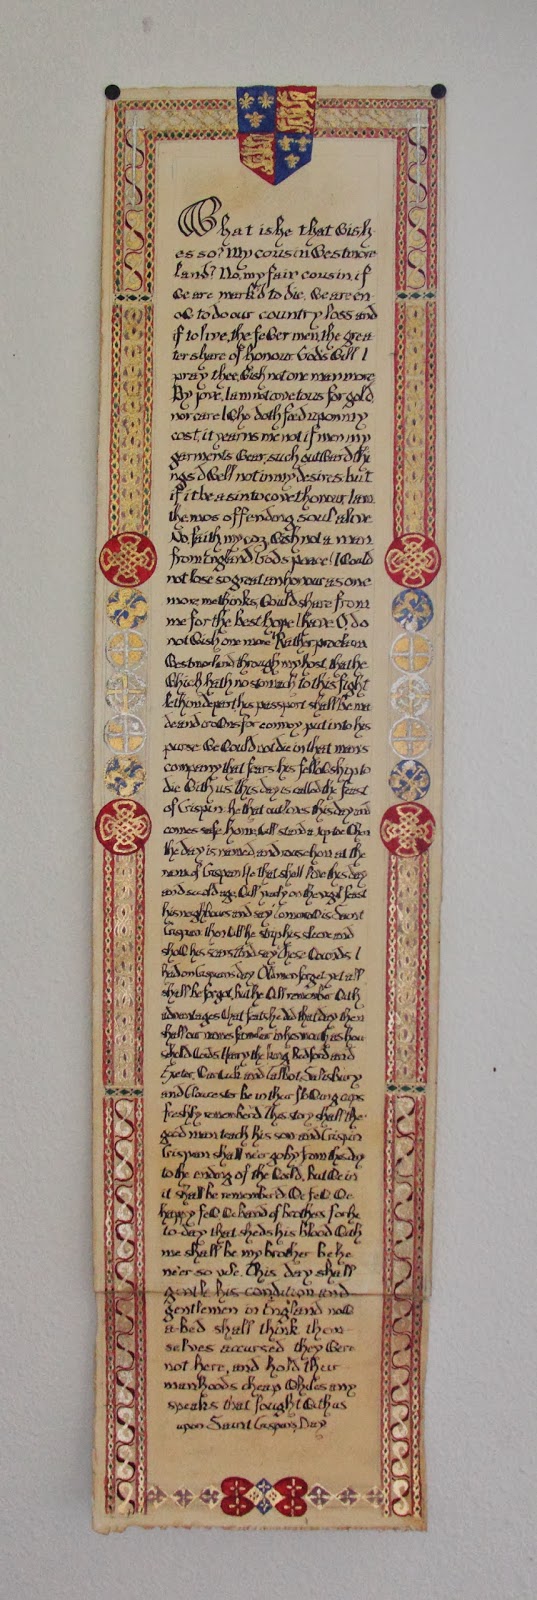 What is he that wish
es so? My cousin Westmore
land? No, my fair cousin if
we are mark'd to die, we are en-
ow to do our country loss and
if to live, the fewer men, the grea
ter share of honour Gods will I
pray thee, wish not one man more
By Jove, I am not covetous for gold,
nor care I who doth feed upon my
cost, it yearns me not if men my
garments wear, such outward thi
ngs dwell not in my desires: but
if it be a sin to covet honour, I am
the mos offending soul alive
No, faith, my coz, wish not a man
from England God's peace! I would
not lose so great an honour as one
more, methinks, would share from
me for the best hope I have O, do
not wish one more! Rather proclaim
Westmorland through my host, that he
which hath no stomach to this fight
let him depart his passport shall be ma
de and crowns for convoy put into his
purse we would not die in that man's
company that fears his fellowship to
die with us this day is called the feast
of Crispin he that outlives this day and
comes safe home, will stand a tip toe when
the day is named and rouse him at the
name of Crispian He that shall live this day
and see old age will yearly on the vigil feast
his neighbours and say tomorrow is Saint
Crispian then will he strip his sleeve and
show his scars And say these wounds I
had on Crispians day Old men forget yet all
shall be forgot, but he will remember with
advantages what feats he did that day then
shall our names familiar in his mouth as hou
sehold words Harry the king Bedford and
Exeter, Warwick and Talbot, Salisbury
and Gloucester be in their flowing cups
freshly remember'd This story shall the
good man teach his son and Crispin
Crispian shall ne'er go by from this day
to the ending of the world, but we in
it shall be remember'd We few We
happy few We band of brothers for he
to-day that sheds his blood with
me shall be my brother be he
ne'er so vile, this day shall
gentle his condition and
gentlemen in England now
a-bed shall think them-
selves accursed they were
not here, and hold their
manhoods cheap whiles any
speaks that fought with us
upon Saint Crispin's Day